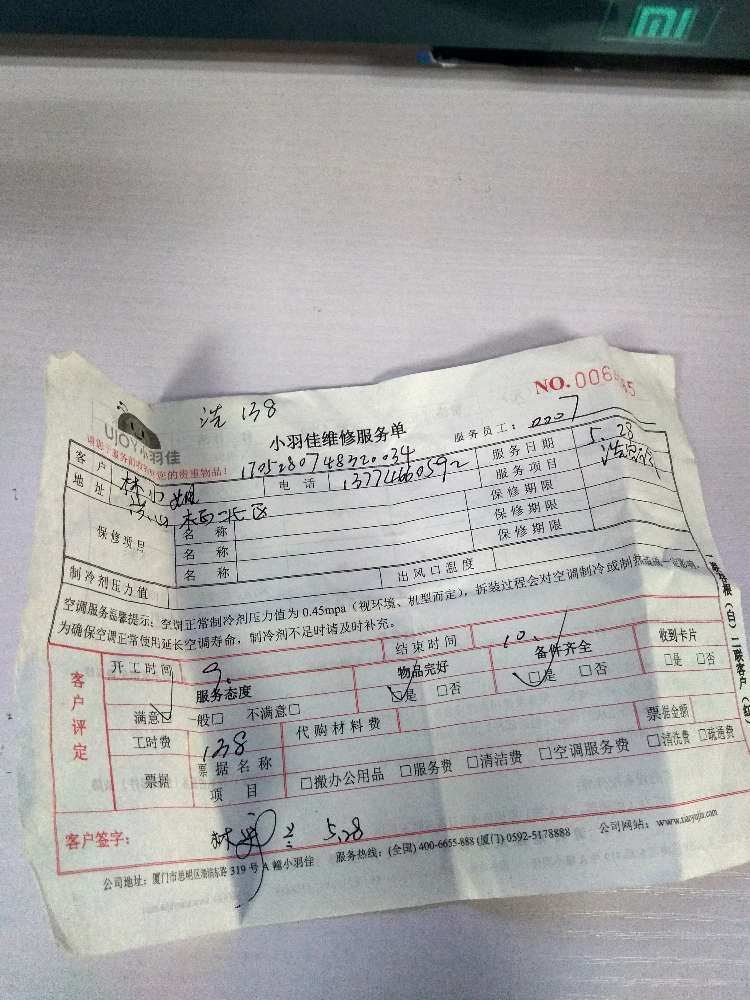 mi
NO.006
洗 138
UJOY小羽佳
小羽佳维修服务单
服务员工： 0007
您的贵重物品！
1705280748320034
客户 林
电话 13774660592
服务日期 5.28
地址
服务项目
保修项目
名称
保修期限
名称
保修期限
名称
保修期限
制冷剂压力值
出风口温度
空调服务温馨提示：空调正常制冷剂压力值为0.45mpa（视环境、机型而定），拆装过程会对空调制冷或制热造成一定影响，
为确保空调正常使用延长空调寿命，制冷剂不足时请及时补充。
客户评定
开工时间 9.
结束时间 10.
服务态度
物品完好
备件齐全
收到卡片
满意□ 一般□ 不满意□
□是 □否
□是 □否
□是 □否
工时费 138
代购材料费
票据
票据名称
票据金额
项目
□搬办公用品 □服务费 □清洁费 □空调服务费 □清洗费 □疏通费
客户签字： 林 5.28
公司地址：厦门市思明区 319号A幢小羽佳 服务热线：(全国) 400-6655-888 (厦门) 0592-5178888 公司网站：www.xiaoyujia.com
(白) 二联客户 (红)